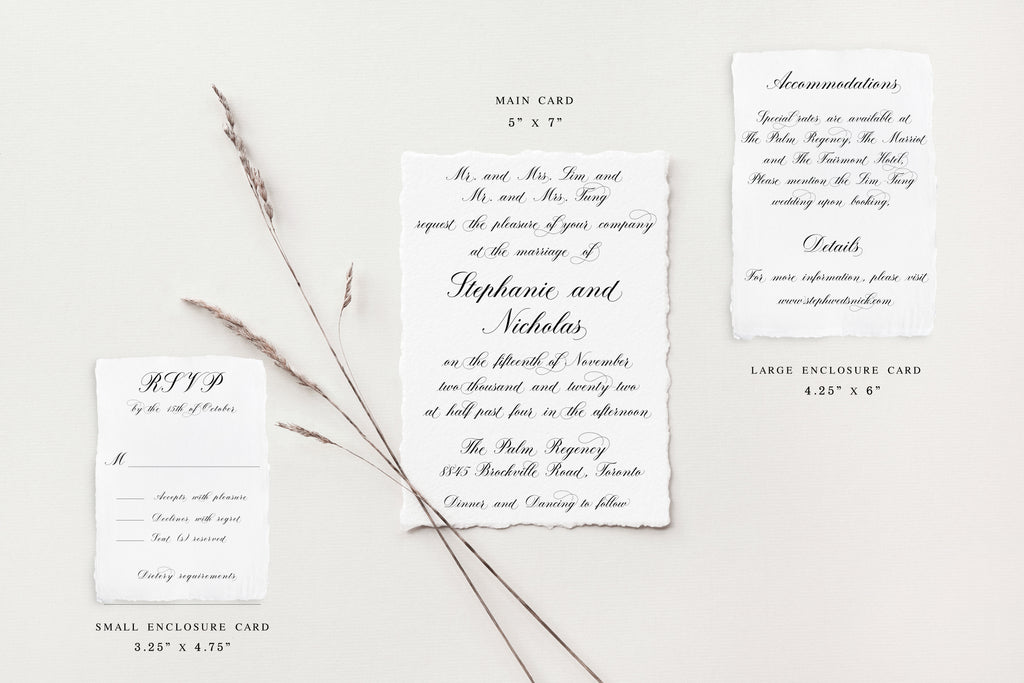 MAIN CARD
5” X 7”
Mr. and Mrs. Lim and
Mr. and Mrs. Tung
request the pleasure of your company
at the marriage of
Stephanie and
Nicholas
on the fifteenth of November
two thousand and twenty two
at half past four in the afternoon
The Palm Regency
8845 Brockville Road, Toronto
Dinner and Dancing to follow
Accommodations
Special rates are available at
The Palm Regency, The Marriot
and The Fairmont Hotel.
Please mention the Lim Tung
wedding upon booking.
Details
For more information, please visit
www.stephwedsnick.com
LARGE ENCLOSURE CARD
4.25” X 6”
RSVP
by the 15th of October
M
Accepts with pleasure
Declines with regret
Seat (s) reserved
Dietery requirements
SMALL ENCLOSURE CARD
3.25” X 4.75”